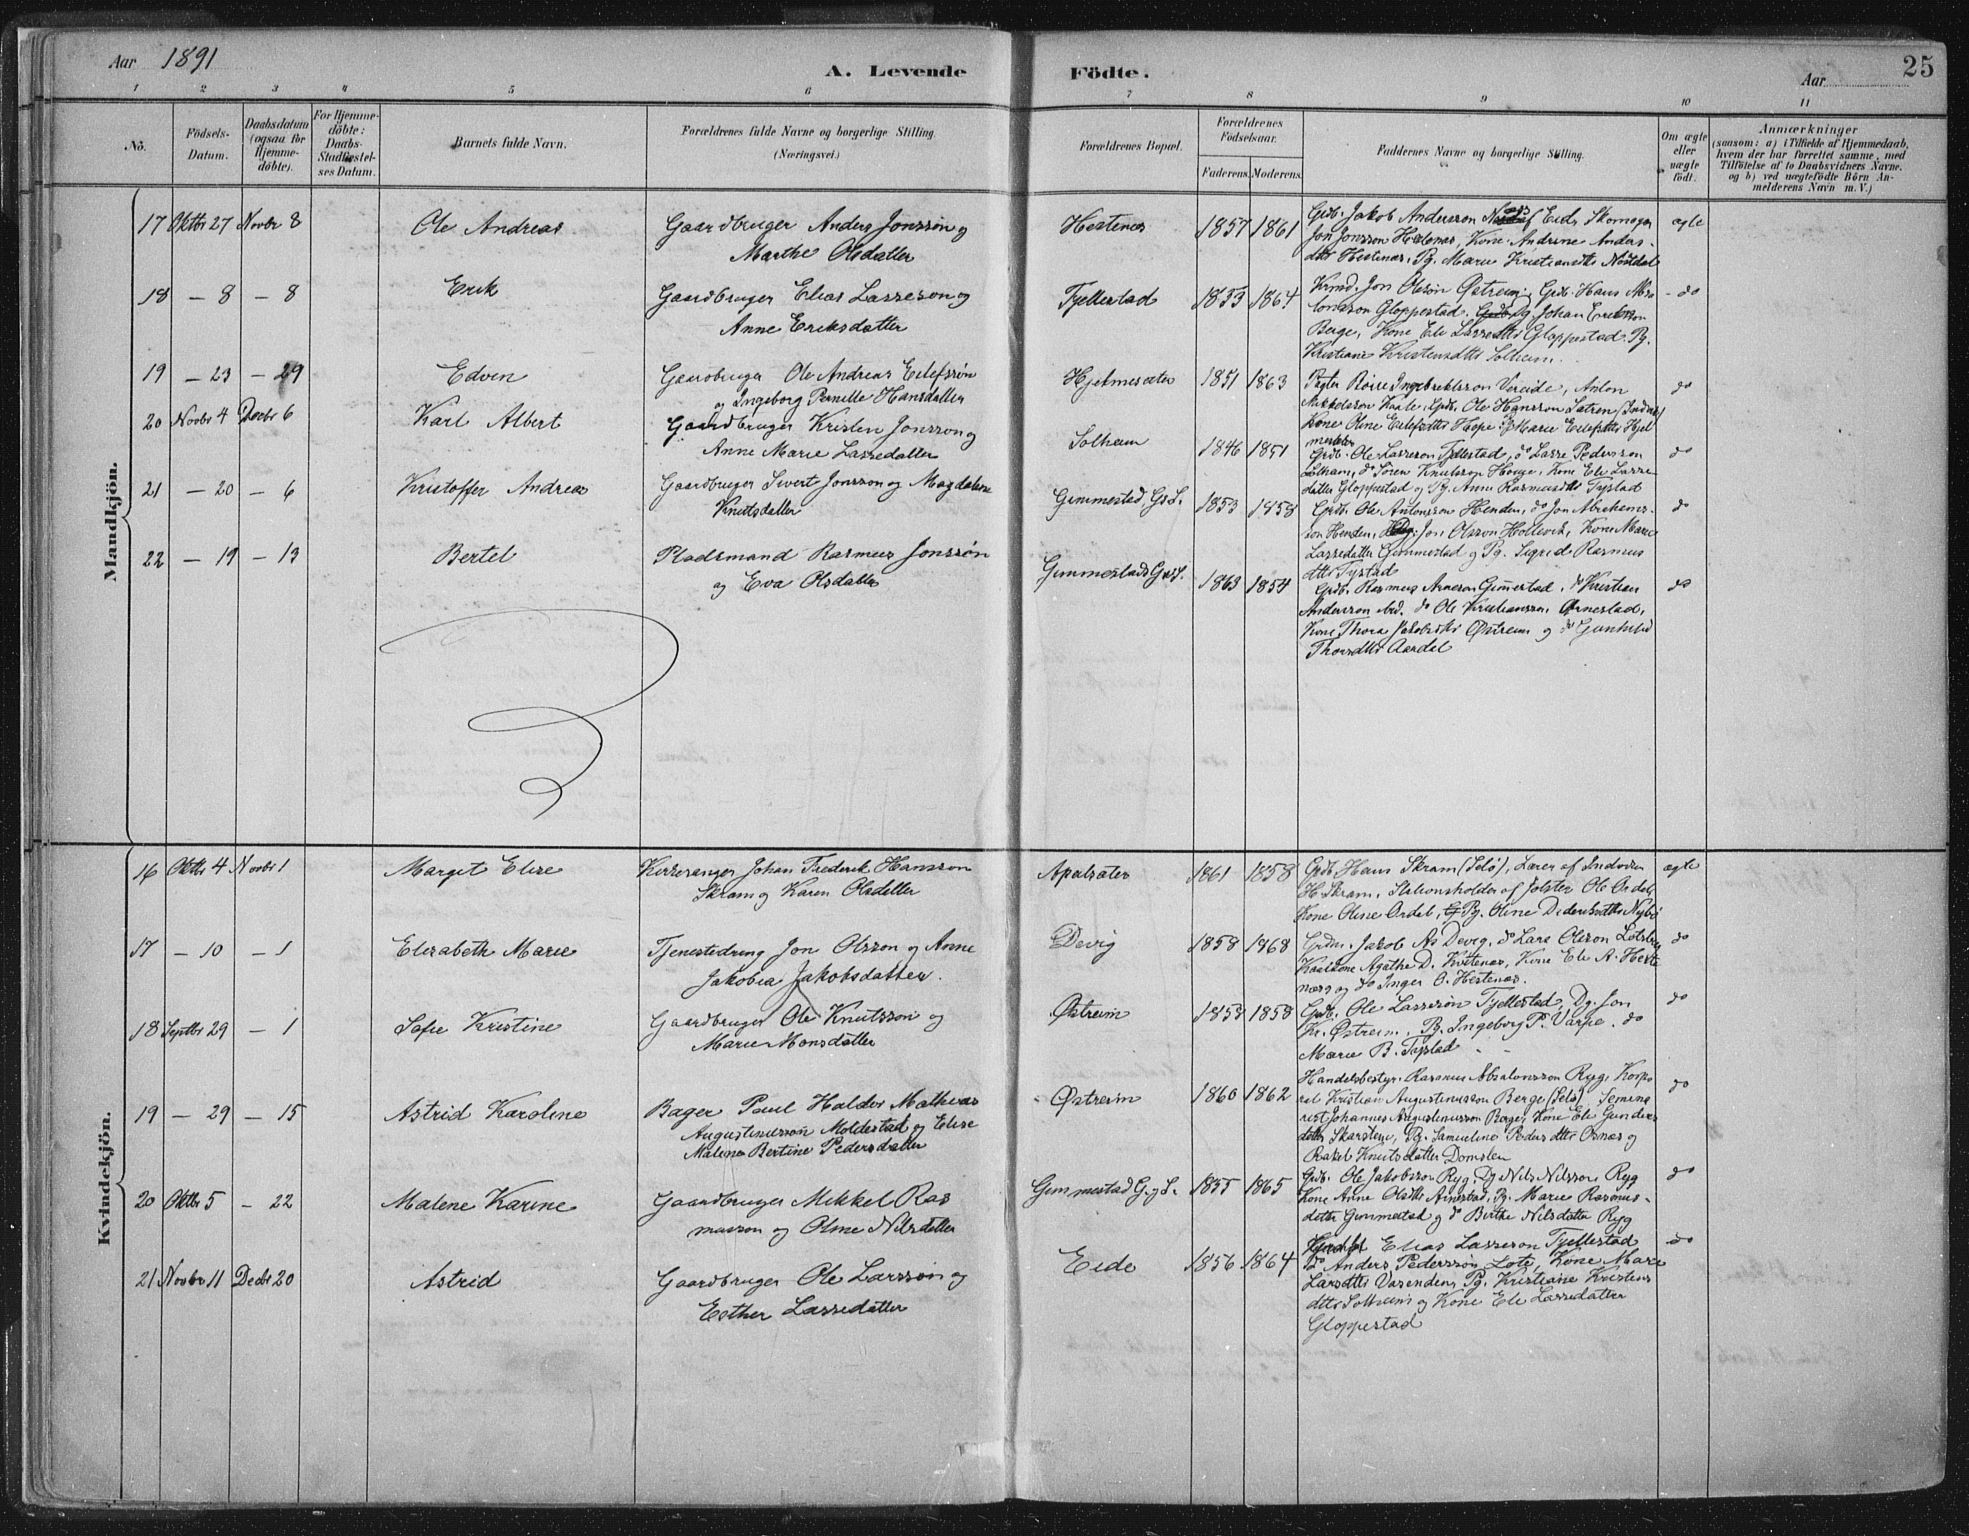 Aar 1891
A. Levende
Fødte.
Aar
25
1 2 3 4 5 6 7 8 9 10 11
No.
Fødsels-Datum.
Daabsdatum (ogsaa for Hjemme-døbte).
For Hjemme-døbte: Daabs-Stadfæstel-ses Datum.
Barnets fulde Navn.
Forældrenes fulde Navne og borgerlige Stilling. (Næringsvei.)
Forældrenes Bopæl.
Forældrenes Fødselsaar.
Faderens. Moderens.
Faddernes Navne og borgerlige Stilling.
Om ægte eller uægte født.
Anmærkninger
(saasom: a) i Tilfælde af Hjemmedaab, hvem der har forrettet samme, med Tilføielse af to Daabsvidners Navne. og b) ved uægtefødte Børn An-melderens Navn m. V.)
Mandkjøn.
17 Oktbr 27 Novbr 8 Ole Andreas
Gaardbruger Anders Jonssøn og
Marthe Olsdatter
Hestenes 1857 1861
Grdb. Jakob Andersson Eid, Skomager
Jon Jonsson Hestenes, Kone Andrine Anders-
dtr Hestenes, Pg. Marie Kristiansdtr Nosdal
ægte
18 - 8 - 8 Erik
Gaardbruger Elias Lasseson og
Anne Eriksdatter
Tjellestad 1853 1864
Jon Olsøn Østreim, Grdb. Hans Abra
Gloppestad, Dg. Johan Erikson
Berge, Kone Ele Lassedtr Gloppestad. Pg.
Kristiane Kristensdtr Solheim.
do
19 - 23 - 29 Edvin
Gaardbruger Ole Andreas Eilefssøn
og Ingeborg Pernille Hansdatter
Hjelmesæter 1851 1863
Ingebrektsson Vereide, Anton
Mikkelsson Kaale, Grdb. Ole Hansson Sætren
Kone Oline Eilefsdtr Hope, Pg Marie Eilefsdtr Hjel
mesæter
do
20 Novbr 4 Decbr 6 Karl Albert
Gaardbruger Kristen Jonsson og
Anne Marie Lassedatter
Solheim 1846 1851
Grdb. Ole Lasseson Tjellestad, do Lasse Pedersson
Solheim, do Søren Knutsson Hauge, Kone Ele Lasse
datter Gloppestad og Pg. Anne Rasmusdtr Tystad
do
21 - 20 - 6 Kristoffer Andreas
Gaardbruger Sivert Jonsson og Magdalene
Knutsdatter
Gimmestad G.S. 1853 1858
Grdb. Ole Antonsson Henden, do Jon Abrahams-
son Henden, Jon Olsson Hollevik, Kone Marie
Lassedatter Gimmestad og Pg. Sigrid Rasmus
dtr Tystad
do
22 - 19 - 13 Bertel
Pladsmand Rasmus Jonssøn
og Eva Olsdatter
Gimmestad 1863 1854
Grdb. Rasmus Arneson Gimmestad, do Kristian
Andersson ibid. do Ole Kristiansson Ørnestad,
Kone Thora Jakobsdtr Østreim og do Gunhild
Thorsdtr Aardal
do
Kvindekjøn.
16 Oktbr 4 Novbr 1 Margit Elise
Kirkesanger Johan Frederik Hansson
Skram og Karen Olsdatter
Apalsæter 1861 1858
Grdb. Hans Skram (Selø), Lærer af Indviken
H. Skram, Stationsholder af Jølster Ole Ordal,
Kone Oline Ordal, Pg. Oline Dideriksdtr Nybø
ægte
17 - 10 - 1 Elizabeth Marie
Tjenestedreng Jon Olsson og Anne
Jakobia Jakobsdatter.
Devig 1858 1868
Jakob As Devig, do Lars Olsson Lotsberg
Agathe D. Hestenes, Kone Ele A. Heste
næs og do Inger O. Hestenæs.
do
18 Septbr 29 - 1 Sofie Kristine
Gaardbruger Ole Knutsson og
Marie Monsdatter
Østreim 1853 1858
Grdb. Ole Lassesøn Tjellestad, Dg. Jon
Kr. Østreim, Pg. Ingeborg P. Varpe. do
Marie B. Tystad
do
19 - 29 - 15 Astrid Karoline
Bager Paul Haldor Mathias
Augustinusson Moldestad og Elise
Malene Bertine Pedersdatter
Østreim 1860 1862
Handelsbestyr. Rasmus Absalonsson Ryg, Korpo
ral Kristian Augustinusson Berge (Selø), Semina
rist Johannes Augustinusson Berge, Kone Ele Gunders
datter Skarsten, Pg. Samueline Pedersdtr Osnes og
Rakel Knutsdatter Domsten
do
20 Oktbr 5 - 22 Malene Karine
Gaardbruger Mikkel Ras
musson og Oline Nilsdatter
Gimmestad G. og S. 1855 1865
Grdb. Ole Jakobsson Ryg, Dg Nils Nilsson Ryg
Kone Anne Olsdtr Arnestad, Pg. Marie Rasmus-
datter Gimmestad og do Birthe Nilsdatter Ryg
do
21 Novbr 11 Decbr 20 Astrid
Gaardbruger Ole Larssøn og
Esther Lassedatter
Eide 1856 1864
Elias Lasseson Tjellestad
do Anders Pederssøn Lote, Kone Mari
Larsdtr Vasenden, Pg. Kristiane Kristens
dtr Solheim og Kone Ele Lassedatter
Gloppestad
do